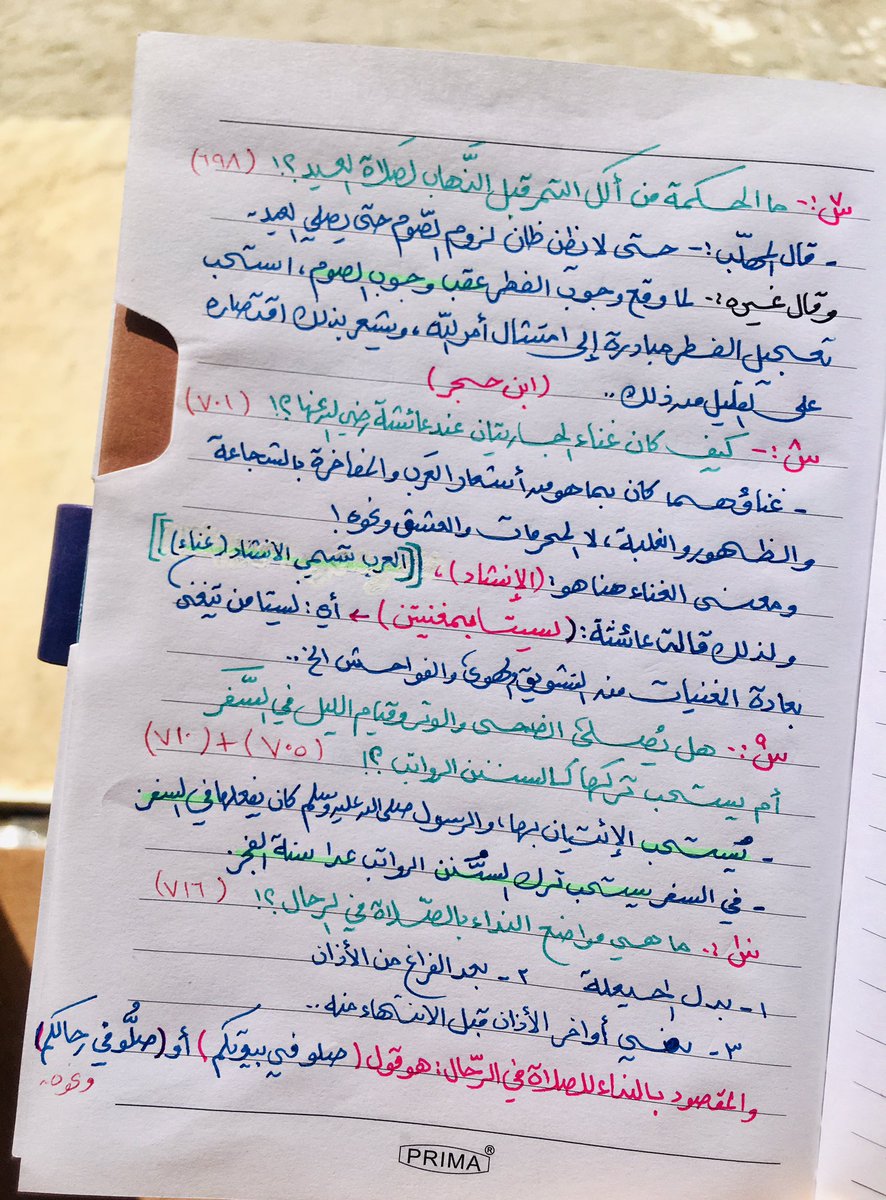 س٧:- ما الحكمة من أكل التمر قبل الذَّهاب لصلاة العيد؟! (٦٩٨)
- قال المهلّب:- حتى لا يظن ظان لزوم الصّوم حتى يصلي العيد.
وقال غيره:- لما وقع وجوب الفطر عقب وجوب الصوم، استحب
تعجيل الفطر مبادرة إلى امتثال أمر الله، ويشعر بذلك اقتصاره
على القليل من ذلك.. (ابن حجر)
س٨:- كيف كان غناء الجاريتان عند عائشة رضي الله عنها؟! (٧٠١)
- غناؤهما كان بما هو من أشعار العرب والمفاخرة بالشجاعة
والظهور والغلبة، لا المحرمات والعشق ونحوه!
ومعنى الغناء هنا هو: (الإنشاد)، [[العرب تسمي الانشاد (غناء)]]
ولذلك قالت عائشة: (ليستا بمغنيتن) ← أي: ليستا من تيغنى
بعادة المغنيات من التشويق والهوى والفواحش الخ..
س٩:- هل يُصلى الضحى والوتر وقيام الليل في السَّفر
أم يستحب تركها كالسنن الرواتب؟! (٧٠٥) + (٧١٠)
- يُستحب الإتيان بها، والرسول صلى الله عليه وسلم كان يفعلها في السفر
- في السفر يستحب ترك السُّنن الرواتب عدا سنة الفجر.
س١٠:- ما هي مواضع النداء بالصّلاة في الرحال؟! (٧١٦)
١- بدل الحيعلة ٢- بعد الفراغ من الأذان
٣- في أواخر الأذان قبل الانتهاء منه..
والمقصود بالنداء للصلاة في الرّحال: هو قول (صلو في بيوتكم) أو (صلُّو في رحالكم)
ونحوه.
PRIMA®